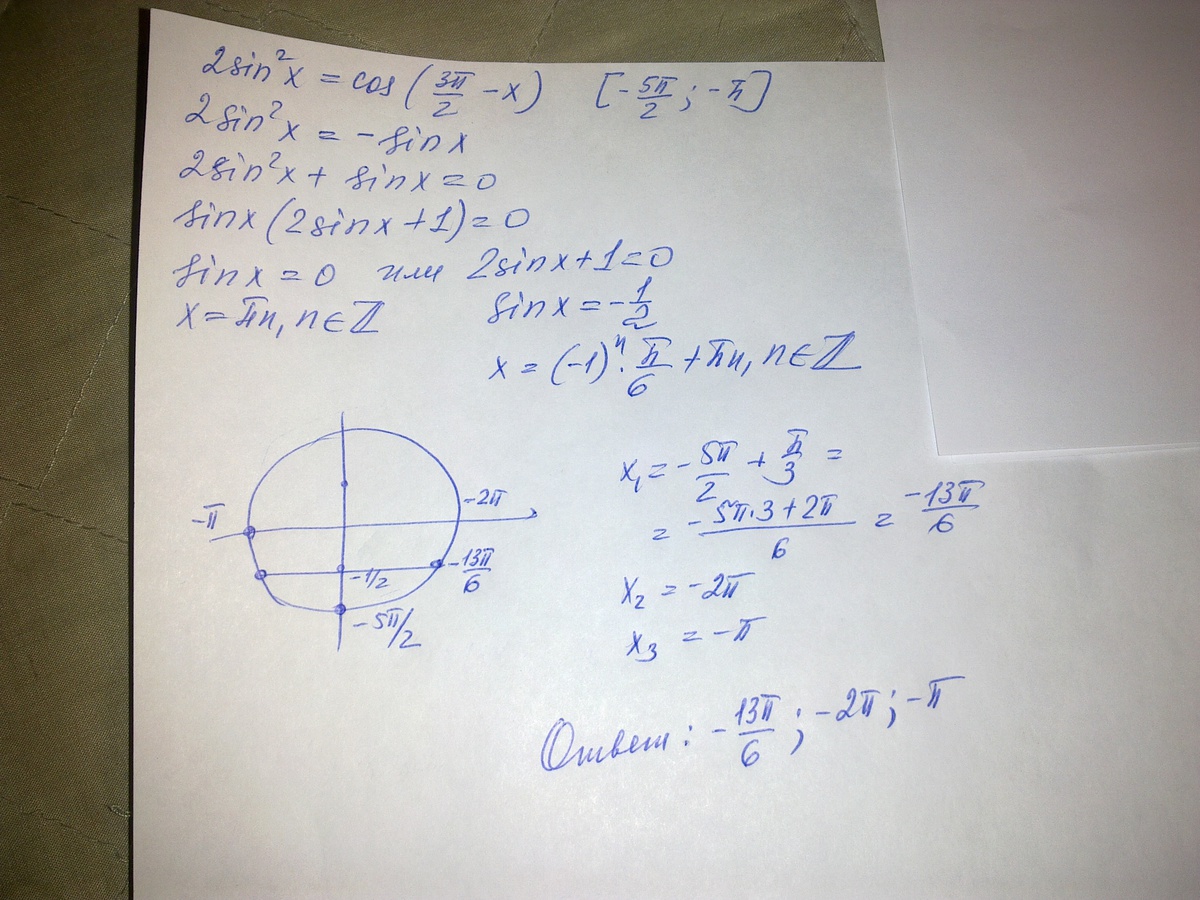 2sin²x = cos(3π/2 - x) [-5π/2; -π]
2sin²x = -sinx
2sin²x + sinx = 0
sinx(2sinx + 1) = 0
sinx = 0 или 2sinx + 1 = 0
x = πn, n ∈ ℤ sinx = -1/2
x = (-1)ⁿ · π/6 + πn, n ∈ ℤ
-π
-2π
-1/2
-13π/6
-5π/2
x₁ = -5π/2 + π/3 =
= (-5π·3 + 2π)/6 = -13π/6
x₂ = -2π
x₃ = -π
Ответ: -13π/6; -2π; -π